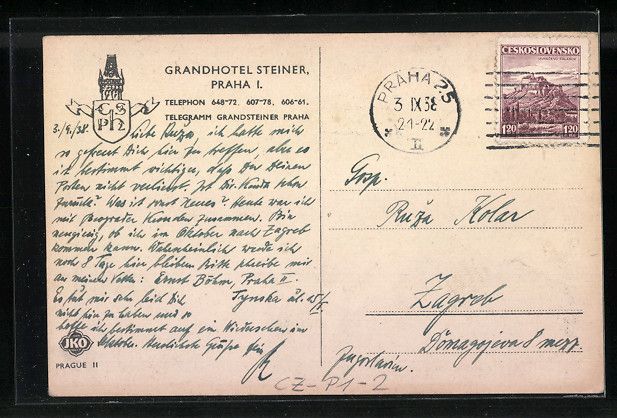 GRANDHOTEL STEINER,
PRAHA I.
TELEPHON 648-72, 607-78, 606-61.
TELEGRAMM GRANDSTEINER PRAHA
G S
P h
3./9./38.
Liebe Ruža, ich hatte mich
so gefreut Dich hier zu treffen, aber es
ist bestimmt wichtiger, dass Du Deinen
Posten nicht verlierst. Ist Dir. schon
zurück? Was ist sonst Neues? Heute war ich
mit Beograder Kunden zusammen. Bin
neugierig, ob ich im Oktober nach Zagreb
kommen kann. Wahrscheinlich werde ich
noch 8 Tage hier bleiben. Bitte schreibe mir
an meinen Vetter: Ernst Böhm, Praha II.
Tynska ul.
Es tut mir sehr leid Dich
nicht hier zu haben und so
hoffe ich bestimmt auf ein Wiedersehen im
Oktober. Herzlichste Grüsse Dein
JKO
PRAGUE II
PRAHA 25
3. IX 38
21-22
II
ČESKOSLOVENSKO
1.20
1.20
Gosp.
Ruža Kolar
Zagreb
Domagojeva 8
Jugoslavien.
CZ-P1-2